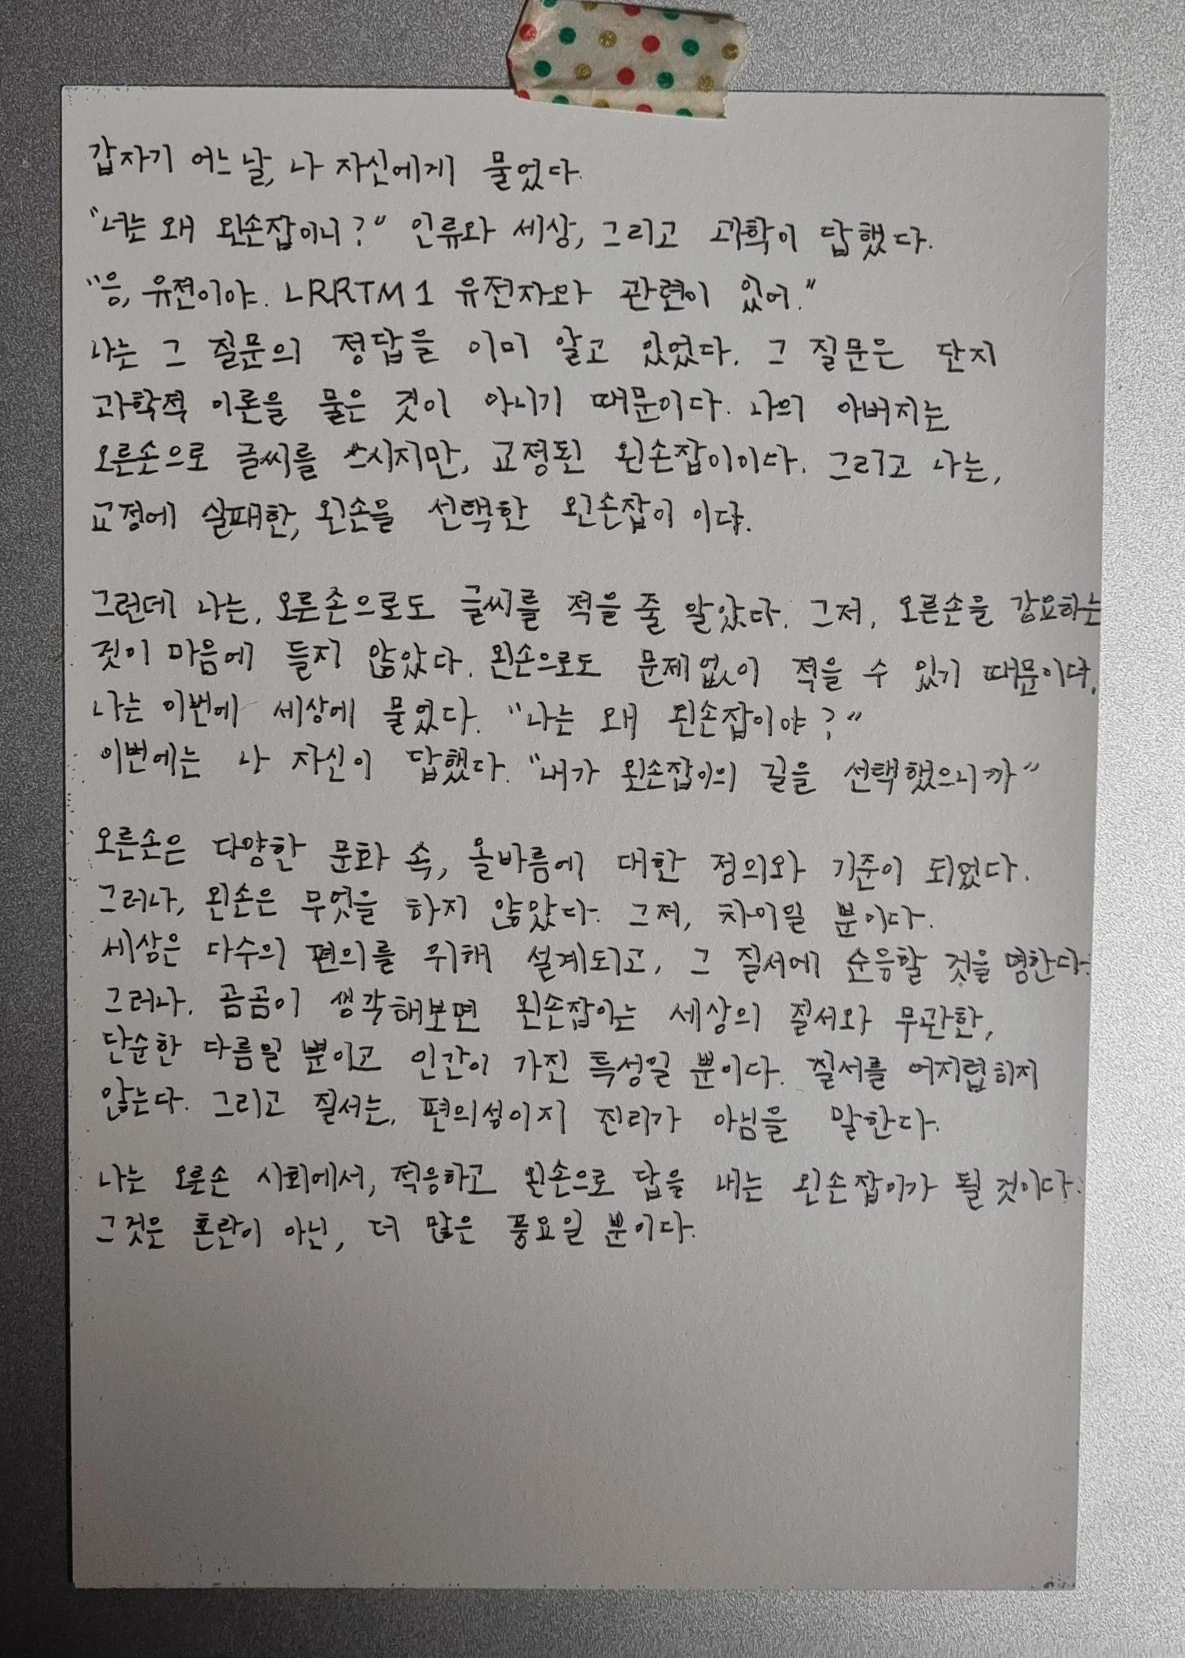 갑자기 어느 날, 나 자신에게 물었다.
"너는 왜 왼손잡이니?" 인류와 세상, 그리고 과학이 답했다.
"응, 유전이야. LRRTM1 유전자와 관련이 있어."
나는 그 질문의 정답을 이미 알고 있었다. 그 질문은 단지
과학적 이론을 물은 것이 아니기 때문이다. 나의 아버지는
오른손으로 글씨를 쓰시지만, 교정된 왼손잡이이다. 그리고 나는,
교정에 실패한, 왼손을 선택한 왼손잡이 이다.
그런데 나는, 오른손으로도 글씨를 적을 줄 알았다. 그저, 오른손을 강요하는
것이 마음에 들지 않았다. 왼손으로도 문제없이 적을 수 있기 때문이다.
나는 이번에 세상에 물었다. "나는 왜 왼손잡이야?"
이번에는 나 자신이 답했다. "내가 왼손잡이의 길을 선택했으니까"
오른손은 다양한 문화 속, 올바름에 대한 정의와 기준이 되었다.
그러나, 왼손은 무엇을 하지 않았다. 그저, 차이일 뿐이다.
세상은 다수의 편의를 위해 설계되고, 그 질서에 순응할 것을 명한다.
그러나. 곰곰이 생각해보면 왼손잡이는 세상의 질서와 무관한,
단순한 다름일 뿐이고 인간이 가진 특성일 뿐이다. 질서를 어지럽히지
않는다. 그리고 질서는, 편의성이지 진리가 아님을 말한다.
나는 오른손 사회에서, 적응하고 왼손으로 답을 내는 왼손잡이가 될 것이다.
그것은 혼란이 아닌, 더 많은 풍요일 뿐이다.